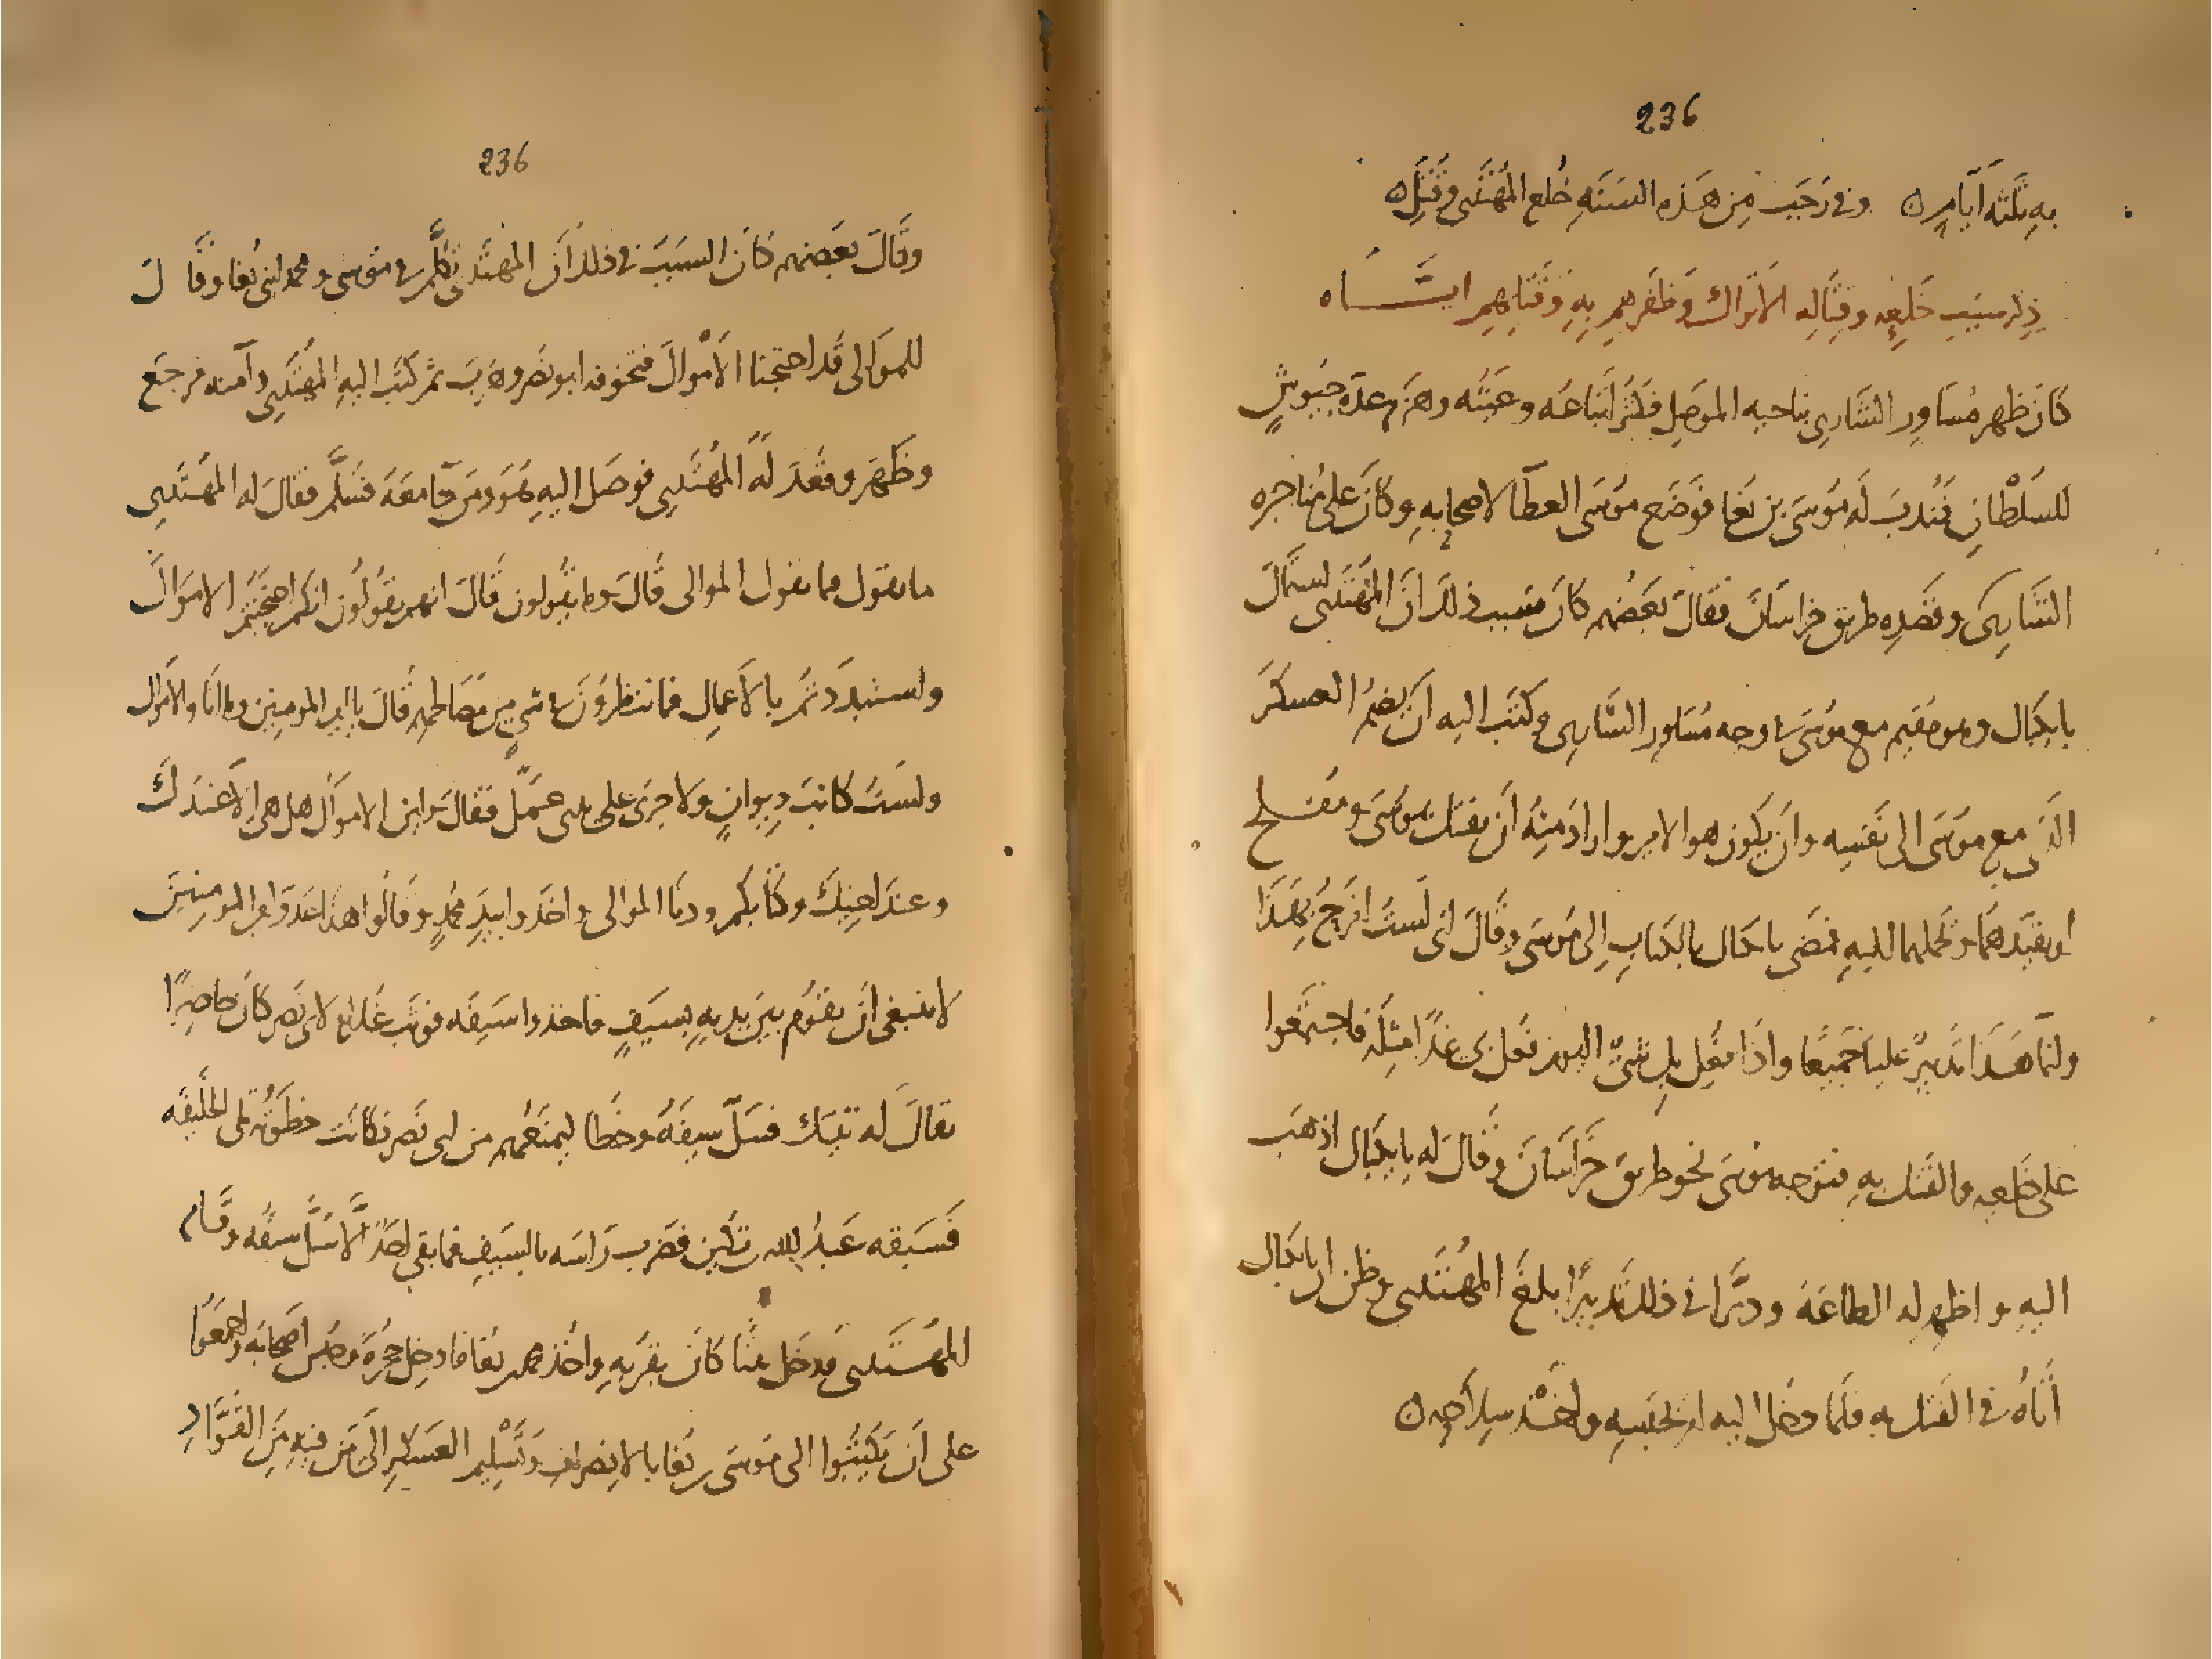 236
به ثلثه ايام ن وفي رجب من هذه السنه خلع المهتدى وقتل ن
ذكر سبب خلعه وقتاله الاتراك وظفرهم به وقتلهم اياه
كان ظهر مساور الشارى بناحيه الموصل فكثر اتباعه وعيثه وهزم عدة جيوش
للسلطان فندب له موسى بن بغا فوضع موسى العطآ لاصحابه وكان على مناجزه
الشارى وقصده طريق خراسان فقال بعضهم كان سبب ذلك ان المهتدى استمال
بايكبال وهو مقيم مع موسى في وجه مساور الشارى وكتب اليه ان يضم العسكر
الذى مع موسى الى نفسه وان يكون هو الامير واراد منه ان يقتل موسى ومفلح
او يقيدهما ويحملهما اليه فمضى بايكبال بالكتاب الى موسى وقال انى لست افرح بهذا
وانما هذا تدبير علينا جميعا واذا فعل بك شئ اليوم فعل بى غدا مثله فاجتمعوا
على خلعه والفتك به فتوجه موسى نحو طريق خراسان وقال له بايكبال اذهب
اليه واظهر له الطاعه ودبرا في ذلك تدبيرا بلغ المهتدى وظن ان بايكبال
اتاه في الفتك به فلما دخل اليه امر بحبسه واخذ سلاحه ن
236
وقال بعضهم كان السبب في ذلك ان المهتدى تكلم في موسى ومحمد ابنى بغا وقال
للموالى قد احتجنا الاموال فتخوف ابو نصر وهرب ثم كتب اليه المهتدى وآمنه فرجع
وظهر وقعد له المهتدى فوصل اليه هو ومن جآ معه فسلم فقال له المهتدى
ما تقول فيما يقول الموالى قال وما يقولون قال انهم يقولون انكم احتجنتم الاموال
واستبددتم بالاعمال فما تنظرون في شي من مصالحهم قال يا امير المومنين وما انا والاموال
ولست كاتب ديوان ولا جرى على يدى عمل فقال واين الاموال هل هى الا عندك
وعند اخيك وكتابكم ودنا الموالى واخذوا بيد محمد وقالوا هذا عدو امير المومنين
لا ينبغى ان يقوم بين يديه بسيف فاخذوا سيفه فوثب غلام لابى نصر كان حاضرا
يقال له ثيتك فسل سيفه وخطا ليمنعهم من ابى نصر فكانت خطوته تلى الخليفه
فسبقه عبد الله بن تكين فضرب راسه بالسيف فما بقي احد الا سل سيفه وقام
المهتدى فدخل بيتا كان بقربه واخذ محمد بن بغا فادخل حجرة وحبس اصحابه واجمعوا
على ان يكتبوا الى موسى بن بغا بالانصراف وتسليم العسكر الى من فيه من القواد